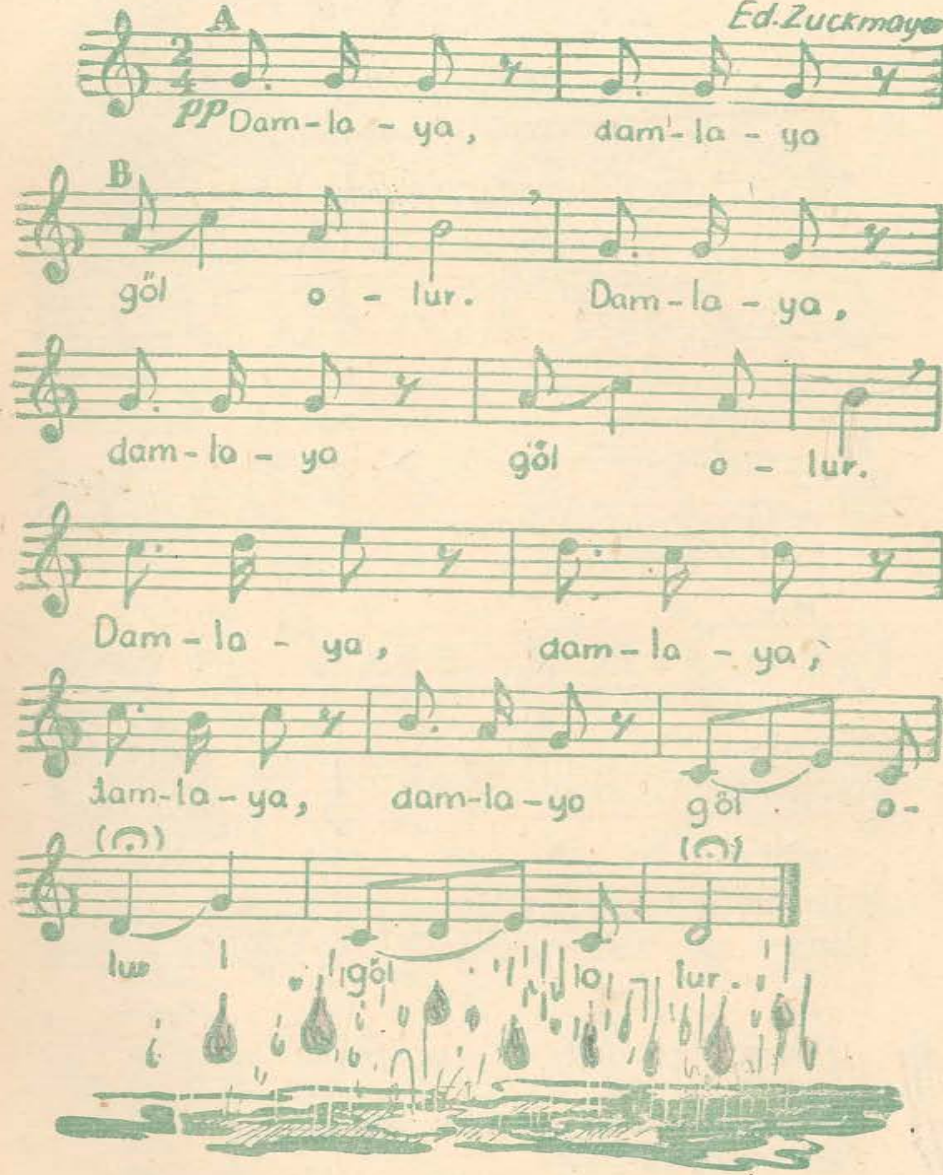 Ed. Zuckmaye
A
2
4
pp Dam-la-ya, dam-la-ya
B
göl o-lur. Dam-la-ya,
dam-la-ya göl o-lur.
Dam-la-ya, dam-la-ya,
dam-la-ya, dam-la-ya göl o-
lur göl o lur.